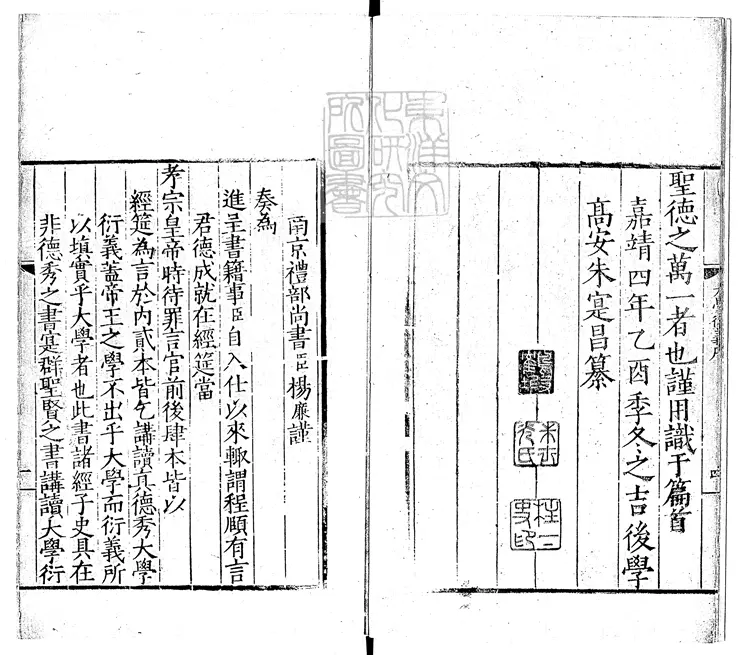 聖德之萬一者也謹用識于篇首
嘉靖四年乙酉季冬之吉後學
高安朱寔昌纂
南京禮部尚書臣楊廉謹
奏為
進呈書籍事臣自入仕以來輒謂程頤有言
君德成就在經筵當
孝宗皇帝時待罪言官前後肆本皆以
經筵為言於內貳本皆乞講讀真德秀大學
衍義蓋帝王之學不出乎大學而衍義所
以填實乎大學者也此書諸經子史具在
非德秀之書寔群聖賢之書講讀大學衍
東洋文
化研究
所圖書